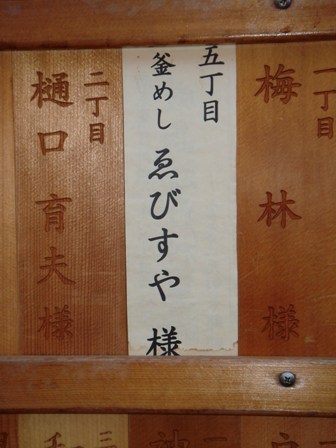 一丁目
梅林様
五丁目
釜めし ゑびすや 様
二丁目
樋口育夫様